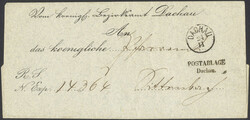 Vom königl. Bezirksamt Dachau
An
das koenigliche Pfarramt
DACHAU
POSTABLAGE
Dachau.
R. S.
N. Exp. 14364